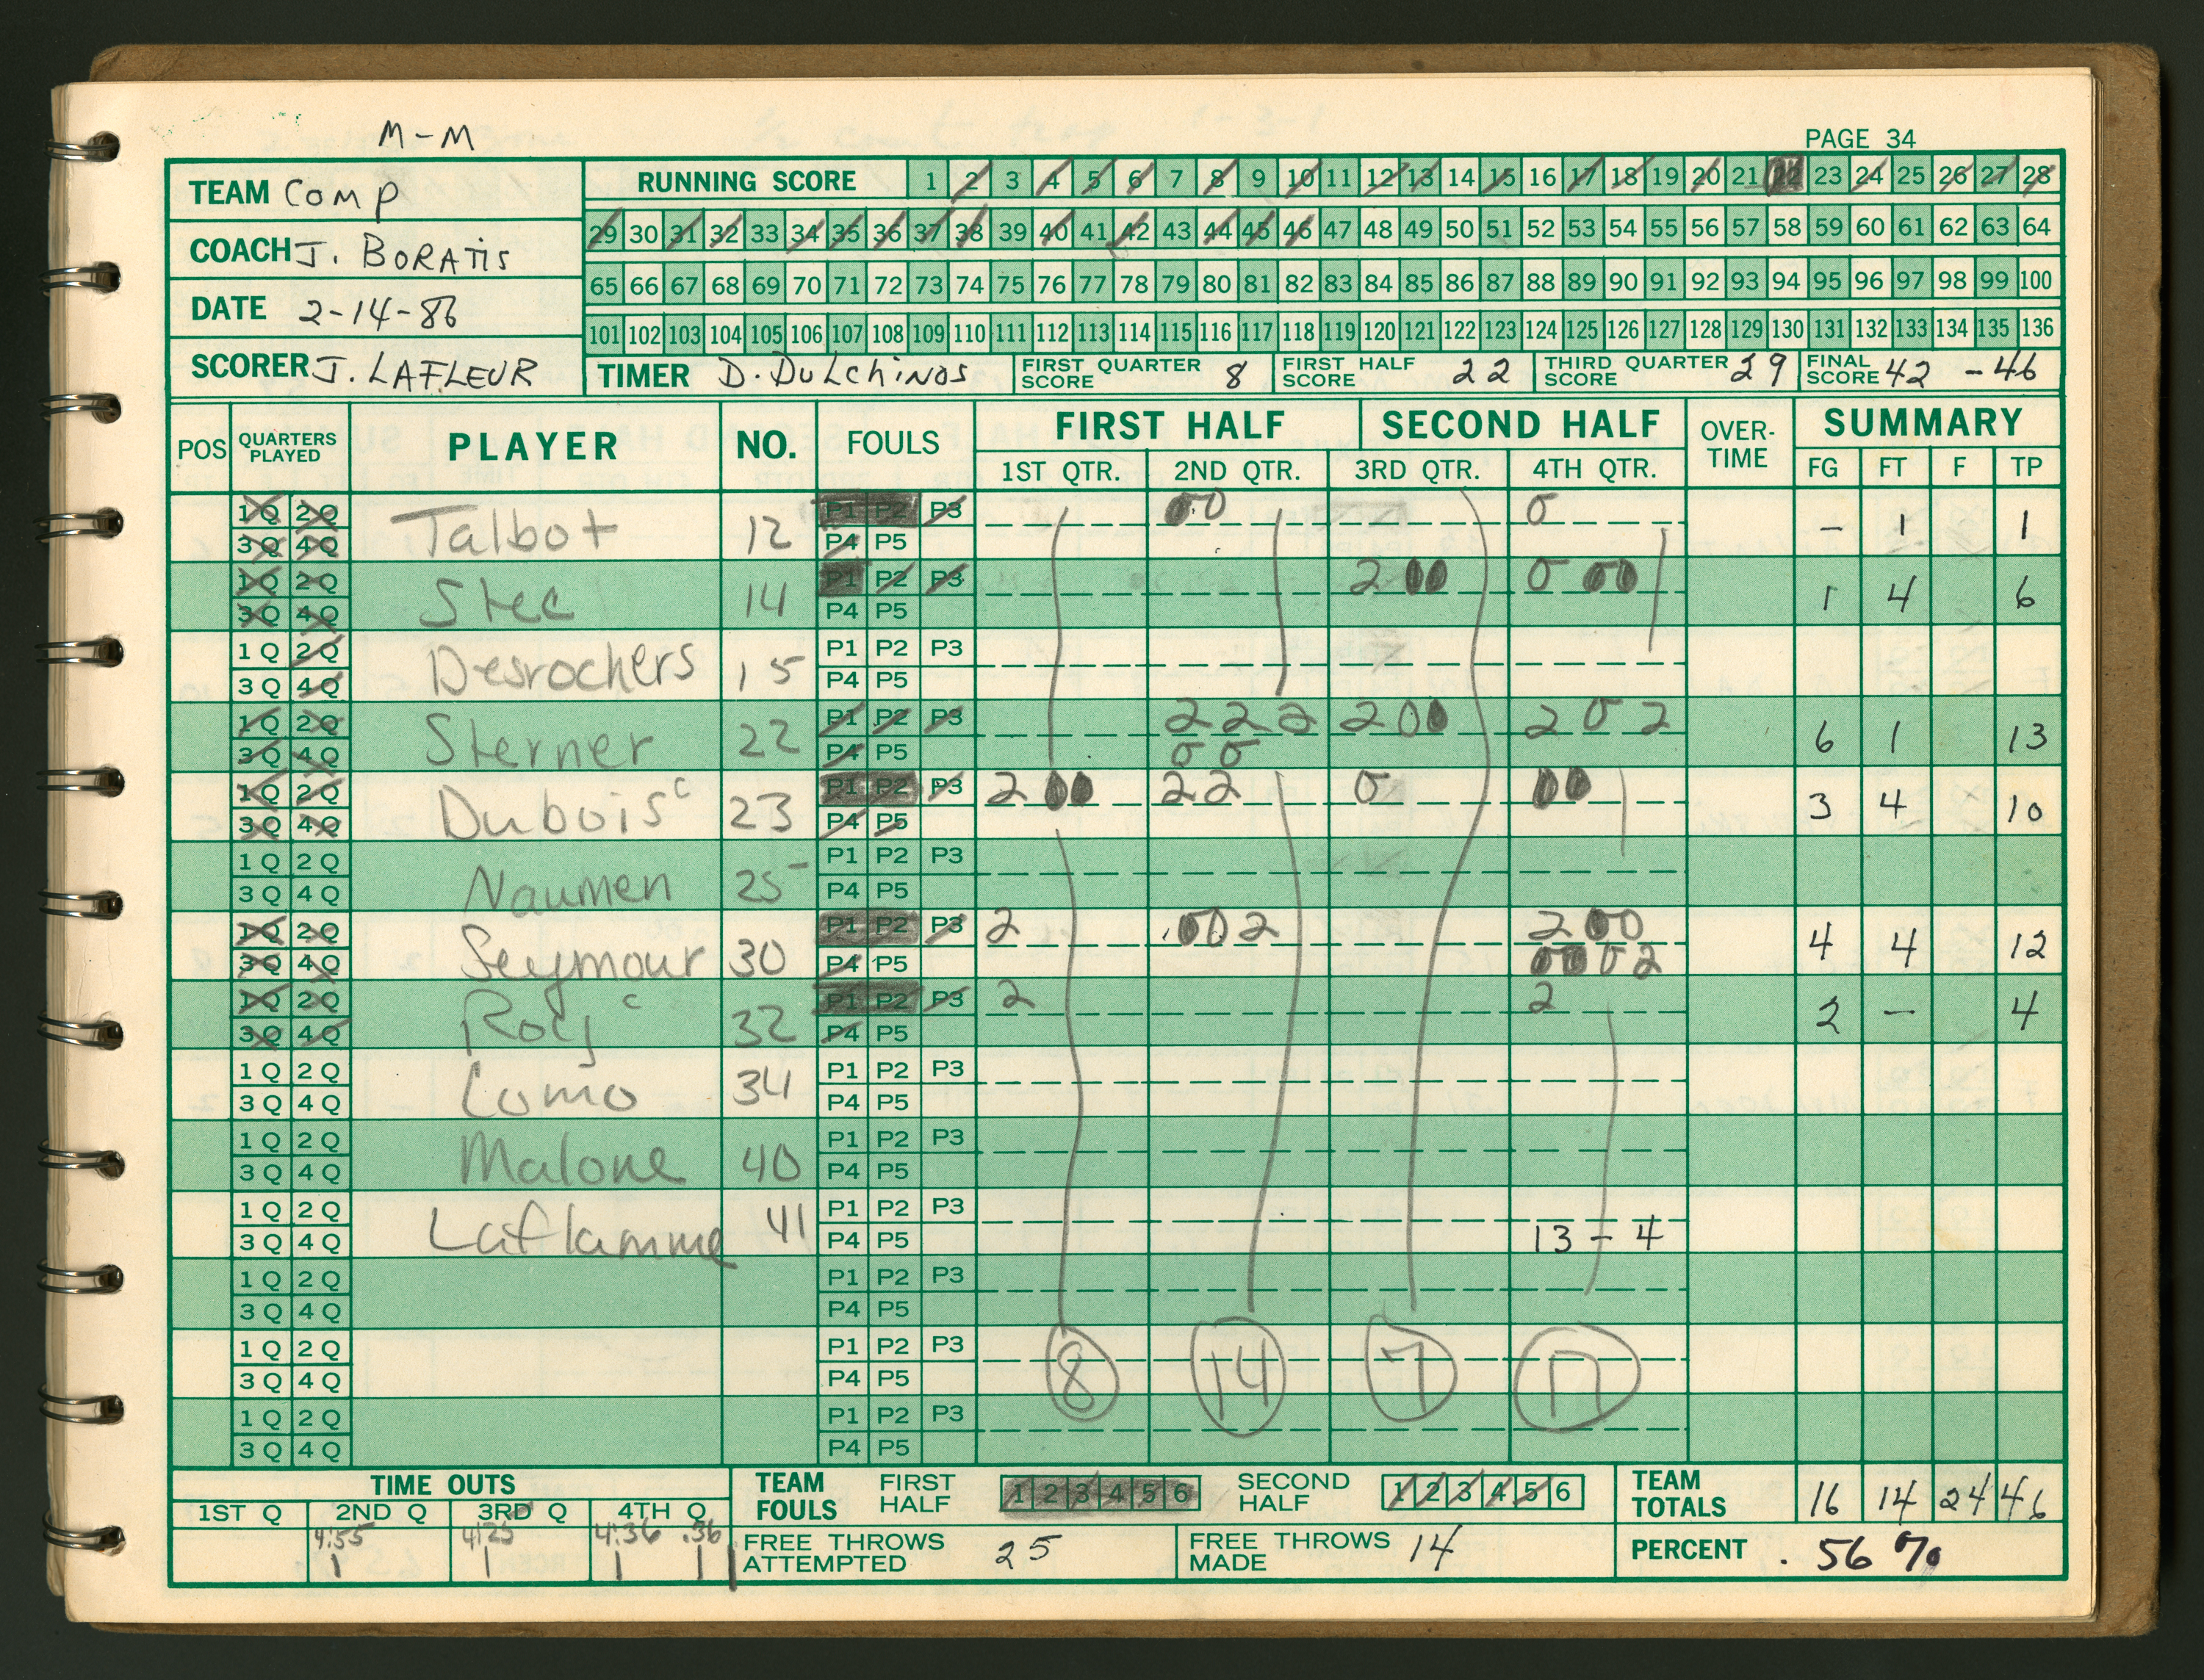 M-M
PAGE 34
TEAM Comp
RUNNING SCORE 1 2 3 4 5 6 7 8 9 10 11 12 13 14 15 16 17 18 19 20 21 22 23 24 25 26 27 28
29 30 31 32 33 34 35 36 37 38 39 40 41 42 43 44 45 46 47 48 49 50 51 52 53 54 55 56 57 58 59 60 61 62 63 64
COACH J. BORATIS
65 66 67 68 69 70 71 72 73 74 75 76 77 78 79 80 81 82 83 84 85 86 87 88 89 90 91 92 93 94 95 96 97 98 99 100
DATE 2-14-86
101 102 103 104 105 106 107 108 109 110 111 112 113 114 115 116 117 118 119 120 121 122 123 124 125 126 127 128 129 130 131 132 133 134 135 136
SCORER J. LAFLEUR
TIMER D. DuLchiNos FIRST QUARTER SCORE 8 FIRST HALF SCORE 22 THIRD QUARTER SCORE 29 FINAL SCORE 42 - 46
POS QUARTERS PLAYED PLAYER NO. FOULS FIRST HALF SECOND HALF OVER-TIME SUMMARY
1ST QTR. 2ND QTR. 3RD QTR. 4TH QTR. FG FT F TP
1Q 2Q Talbot 12 P1 P2 P3 00 0 - 1 1
3Q 4Q P4 P5
1Q 2Q Stec 14 P1 P2 P3 2 00 0 00 1 4 6
3Q 4Q P4 P5
1Q 2Q Desrochers 15 P1 P2 P3
3Q 4Q P4 P5
1Q 2Q Sterner 22 P1 P2 P3 2 2 2 2 0 0 2 0 2 6 1 13
3Q 4Q P4 P5 0 0
1Q 2Q Dubois c 23 P1 P2 P3 2 00 2 2 0 00 3 4 10
3Q 4Q P4 P5
1Q 2Q Naumen 25 P1 P2 P3
3Q 4Q P4 P5
1Q 2Q Seymour 30 P1 P2 P3 2 00 2 2 00 4 4 12
3Q 4Q P4 P5 00 0 2
1Q 2Q Roy c 32 P1 P2 P3 2 2 2 - 4
3Q 4Q P4 P5
1Q 2Q Lomo 34 P1 P2 P3
3Q 4Q P4 P5
1Q 2Q Malone 40 P1 P2 P3
3Q 4Q P4 P5
1Q 2Q Laflamme 41 P1 P2 P3
3Q 4Q P4 P5 13 - 4
1Q 2Q P1 P2 P3
3Q 4Q P4 P5
1Q 2Q P1 P2 P3 8 14 7 17
3Q 4Q P4 P5
1Q 2Q P1 P2 P3
3Q 4Q P4 P5
TIME OUTS TEAM FOULS FIRST HALF 1 2 3 4 5 6 SECOND HALF 1 2 3 4 5 6 TEAM TOTALS 16 14 24 46
1ST Q 2ND Q 3RD Q 4TH Q
4:55 4:25 4:36 .36
1 1 1 1 FREE THROWS ATTEMPTED 25 FREE THROWS MADE 14 PERCENT .56 %